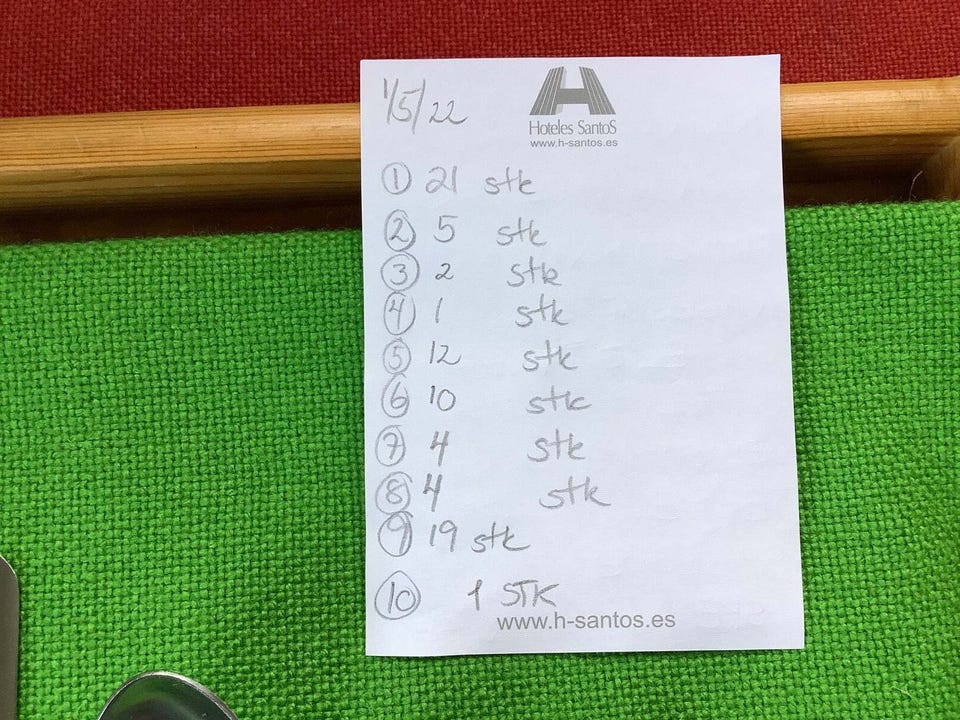 1/5/22
Hoteles SantoS
www.h-santos.es
① 21 stk
② 5 stk
③ 2 stk
④ 1 stk
⑤ 12 stk
⑥ 10 stk
⑦ 4 stk
⑧ 4 stk
⑨ 19 stk
⑩ 1 STK
www.h-santos.es